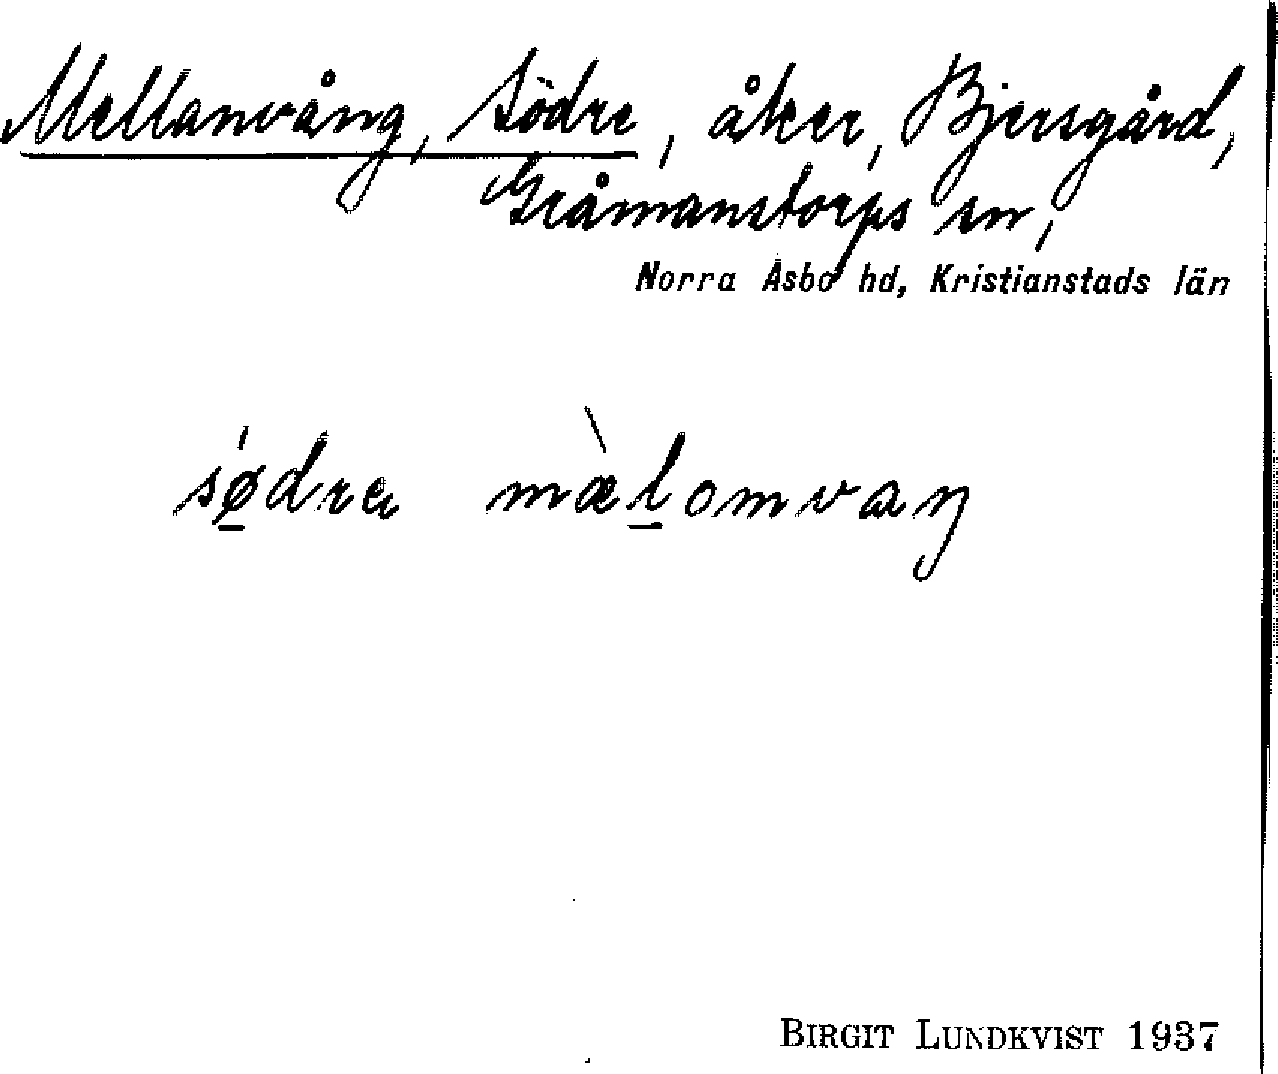 Mellanvång, Södre, åker, Bjersgård,
Gråmanstorps sn,
Norra Åsbo hd, Kristianstads län
sø̲dra mæl̲omvaŋ
BIRGIT LUNDKVIST 1937